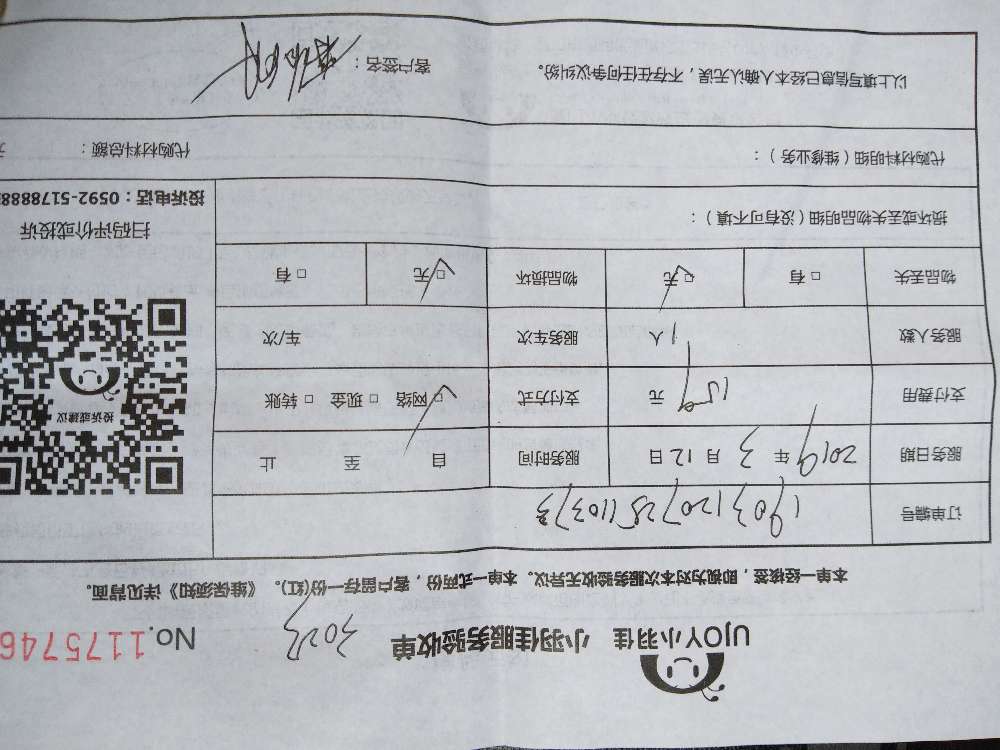 UJOY小羽佳 小羽佳服务验收单 3025 No.1175746
本单一经接签，即视为对本次服务验收无异议。本单一式两份，客户留存一份(红)。《维保须知》详见背面。
订单编号 190312072511037
服务日期 2019 年 3 月 12 日 服务时间 自 至 止
支付费用 159 元 支付方式 □ 网络 □ 现金 □ 转账
投诉或建议
服务人数 1 人 服务车次 车/次
物品丢失 □ 有 □ 无 物品损坏 □ 无 □ 有
扫码评价或投诉
损坏或丢失物品明细（没有可不填）：
投诉电话：0592-5178888
代购材料明细（维修业务）： 代购材料总额： 元
以上填写信息已经本人确认无误，不存在任何争议纠纷。 客户签名：